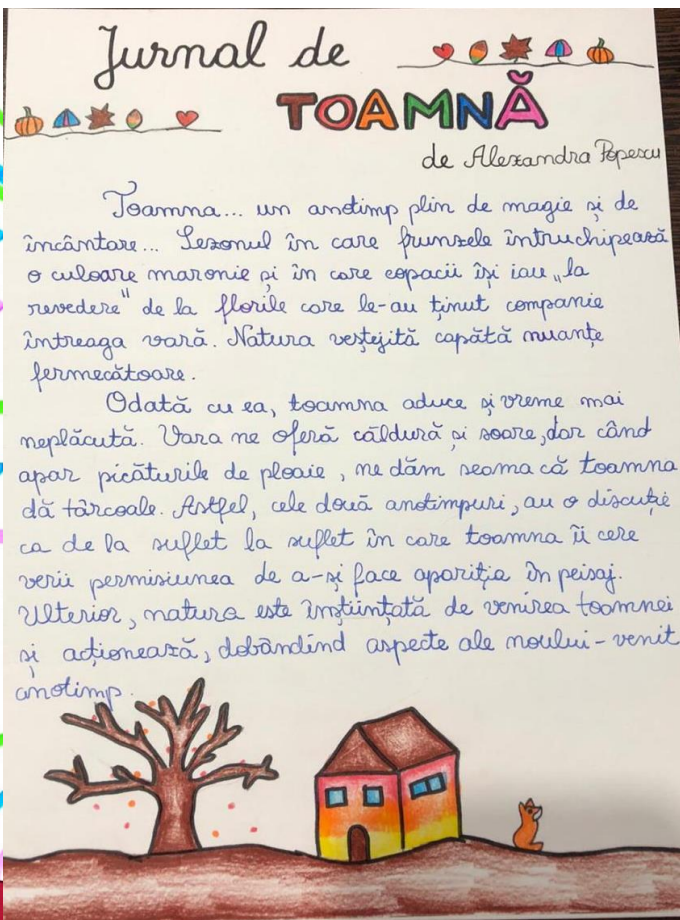 Jurnal de
TOAMNĂ
de Alexandra Popescu
Toamna... un anotimp plin de magie și de
încântare... Sezonul în care frunzele întruchipează
o culoare maronie și în care copacii își iau „la
revedere" de la florile care le-au ținut companie
întreaga vară. Natura veștejită capătă nuanțe
fermecătoare.
Odată cu ea, toamna aduce și vreme mai
neplăcută. Vara ne oferă căldură și soare, dar când
apar picăturile de ploaie, ne dăm seama că toamna
dă târcoale. Astfel, cele două anotimpuri, au o discuție
ca de la suflet la suflet în care toamna îi cere
verii permisiunea de a-și face apariția în peisaj.
Ulterior, natura este înștiințată de venirea toamnei
și acționează, dobândind aspecte ale noului-venit
anotimp.